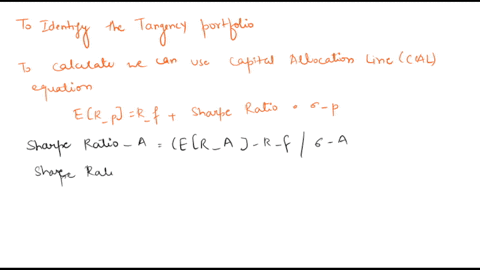 To Identify the Tangency portfolio
To calculate we can use Capital Allocation Line (CAL)
equation
E[R_p] = R_f + Sharpe Ratio • σ-p
Sharpe Ratio - A = (E[R_A] - R-f / σ-A
Sharpe Rati